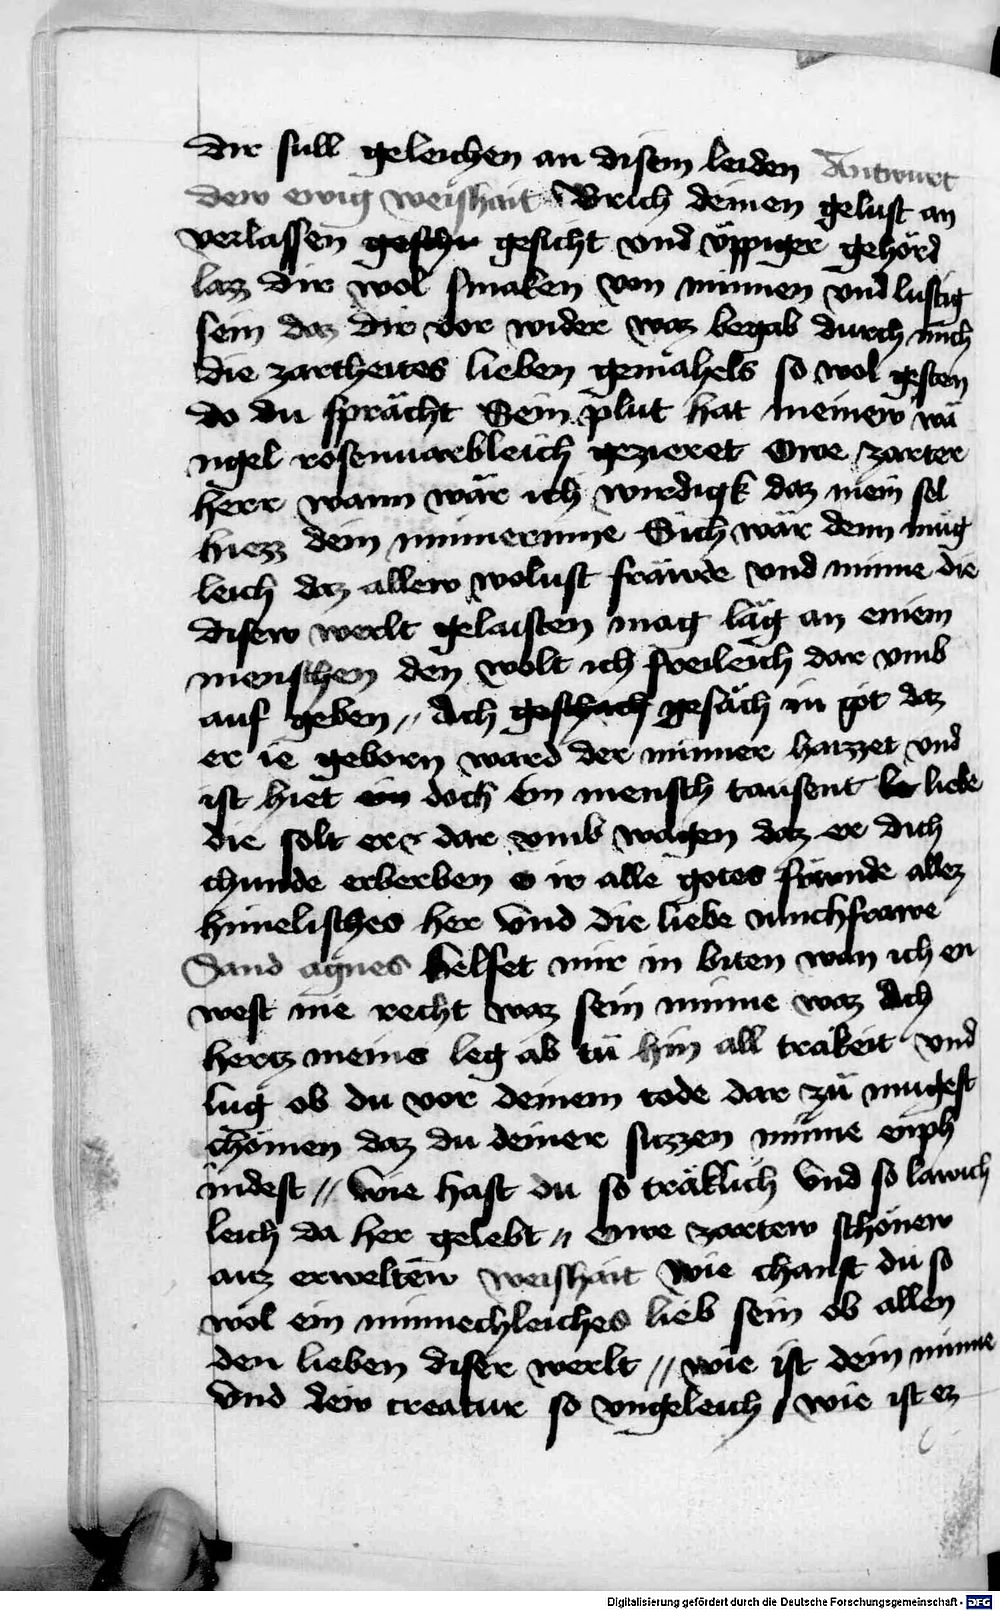 dir sull geleichen an disem leiden Antwurt
dew ewig weishait Brich deinen gelust an
verlassen geschu gesicht vnd vppiger gehörd
laz dir wol smaken von minnen vnd lustig
sein daz dir vor wider waz begab durch mich
die zartheites lieben gemähels so wol gesten
do du sprächt Sein plut hat meinew wä
ngel rosenuarbleich gezieret Owe zarter
herr wann wär ich wirdigk daz mein sel
hiezz dein minnerinne Sich wär denn müg
leich daz allew wolust fräwde vnd minne die
disew werlt gelaisten mag läg an einem
menschen den wolt ich freileich dar vmb
auf geben // Ach geschach gesäch in got daz
er ie geborn ward der minner haizzet vnd
ist hiet ein doch ein mensch tausent le liebe
die solt er dar vmb wagen daz er dich
chunde erberben o ir alle gotes fräunde allez
himelisches her vnd die liebe iunchfrawe
Sand agnes helfet mir in biten wan ich en
west nie recht waz sein minne waz Ach
hertz meins leg ab tü hin all träkeit vnd
lug ob du vor deinem tode dar zü mugest
chömen daz du deiner süzzen minne enph
indest // wie hast du so träklich vnd so lawich
leich da her gelebt // Owe zartew schönew
auz erweltew weishait wie chanst du so
wol ein minnechleiches lieb sein ob allen
den lieben diser werlt // wie ist dein minne
vnd dew creatur so vngeleich / wie ist ez
Digitalisierung gefördert durch die Deutsche Forschungsgemeinschaft - DFG